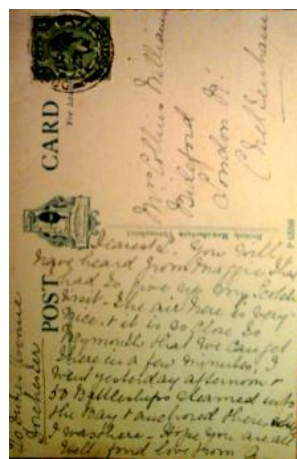 POST CARD
For Ad
British Manufacture Throughout
Mrs Collins William
Bideford
London Rd
Cheltenham
Dearest L. You will
have heard from Maggie I've
had to give up my Scotch
visit. The air here is very
nice & it is so close to
Weymouth that we can get
there in a few minutes. I
went yesterday afternoon &
50 Battleships steamed into
the Bay & anchored there while
I was there. Hope you are all
well fond love from
Avenue
Dorchester